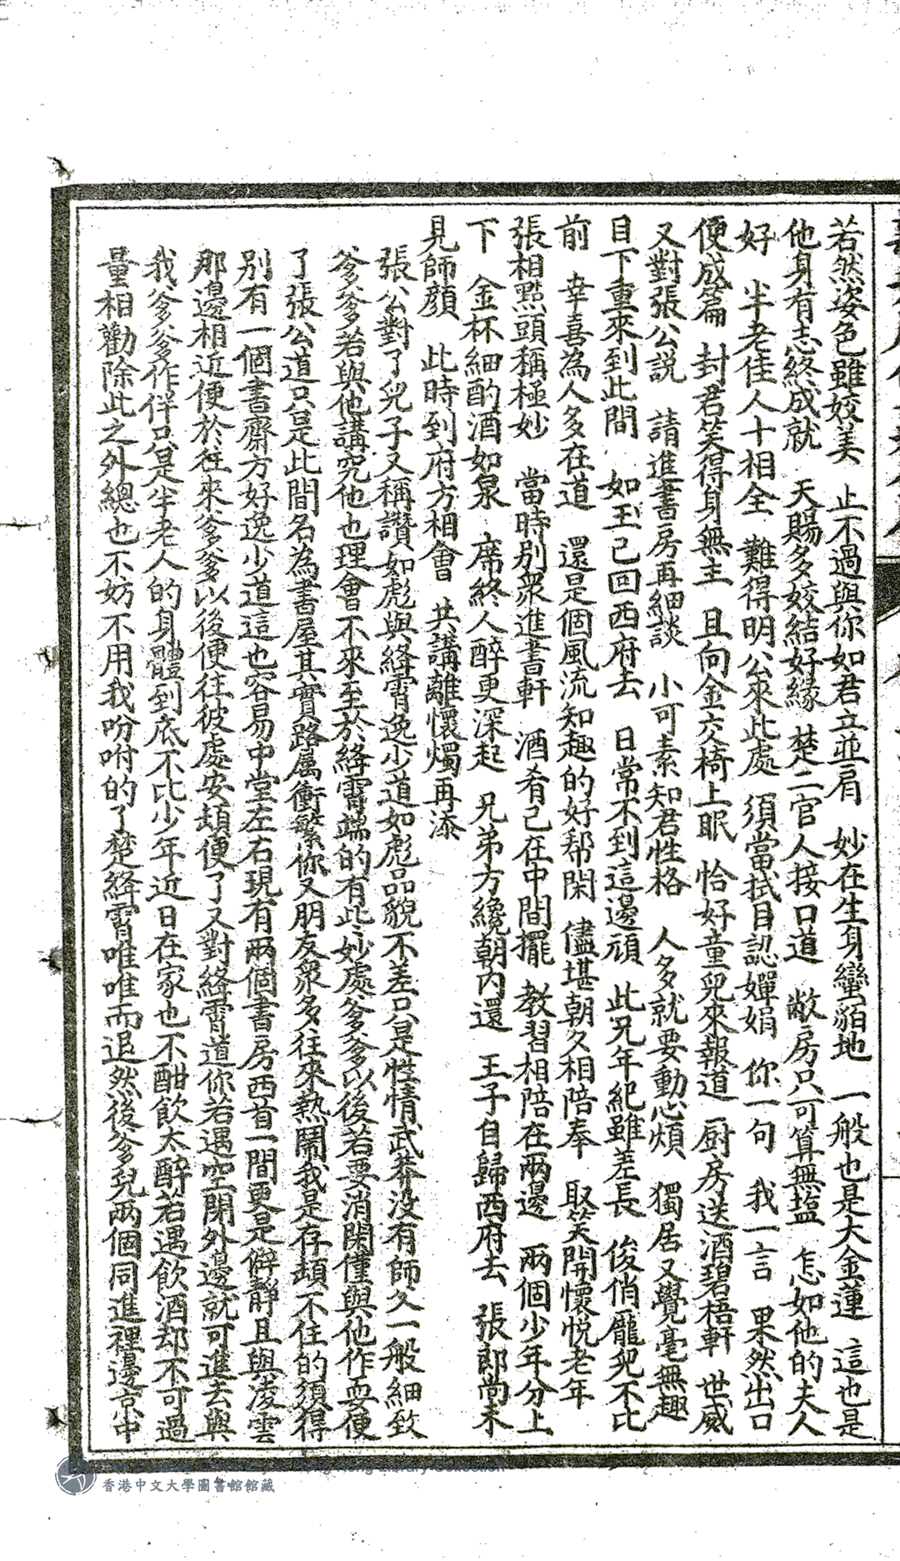 若然姿色雖姣美　止不過與你如君立並肩　妙在生身蠻貊地　一般也是大金蓮　這也是
他身有志終成就　天賜多姣結好緣　楚二官人接口道　敝房只可算無塩　怎如他的夫人
好　半老佳人十相全　難得明公來此處　須當拭目認嬋娟　你一句　我一言　果然出口
便成篇　封君笑得身無主　且向金交椅上眠　恰好童兒來報道　厨房送酒碧梧軒　世威
又對張公説　請進書房再細談　小可素知君性格　人多就要動心煩　獨居又覺毫無趣
目下重來到此間　如玉已回西府去　日常不到這邊頑　此兄年紀雖差長　俊俏龐兒不比
前　幸喜為人多在道　還是個風流知趣的好帮閑　儘堪朝夕相陪奉　取笑開懷悅老年
張相點頭稱極妙　當時別衆進書軒　酒肴已在中間擺　教習相陪在兩邊　兩個少年分上
下　金杯細酌酒如泉　席終人醉更深起　兄弟方纔朝內還　王子自歸西府去　張郎尚未
見師顔　此時到府方相會　共講離懷燭再添
張公對了兒子又稱讚如彪與絳霄逸少道如彪品貌不差只是性情武莽沒有師久一般細致
爹爹若與他講究他也理會不來至於絳霄端的有此妙處爹爹以後若要消閑僅與他作耍便
了張公道只是此間名為書屋其實路屬衝繁你又朋友衆多往來熱鬧我是存頡不住的須得
別有一個書齋方好逸少道這也容易中堂左右現有兩個書房西首一間更是僻靜且與凌雲
那邊相近便於往來爹爹以後便往彼處安頡便了又對絳霄道你若遇空閑外邊就可進去與
我爹爹作伴只是半老人的身體到底不比少年近日在家也不酣飲太醉若遇飲酒却不可過
量相勸除此之外總也不妨不用我吩咐的了楚絳霄唯唯而退然後爹兒兩個同進裡邊京中
香港中文大學圖書館館藏